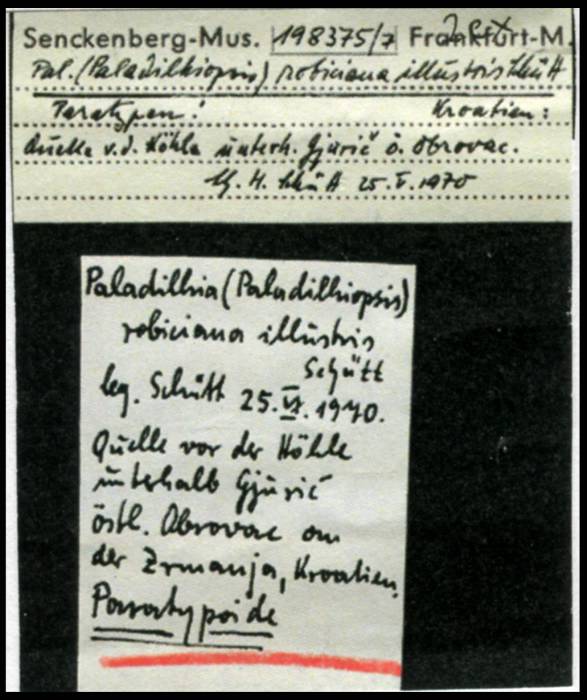 Senckenberg-Mus. 198375/7 Frankfurt-M.
Pal. (Paladilhiopsis) robiciana illustris Schütt
Paratypen! Kroatien:
Quelle v.d. Höhle unterh. Gjurić ö. Obrovac.
lg. H. Schütt 25.V.1970
Paladilhia (Paladilhiopsis)
robiciana illustris
Schütt
leg. Schütt 25.VI.1970.
Quelle vor der Höhle
unterhalb Gjurić
östl. Obrovac an
der Zrmanja, Kroatien.
Paratypoide